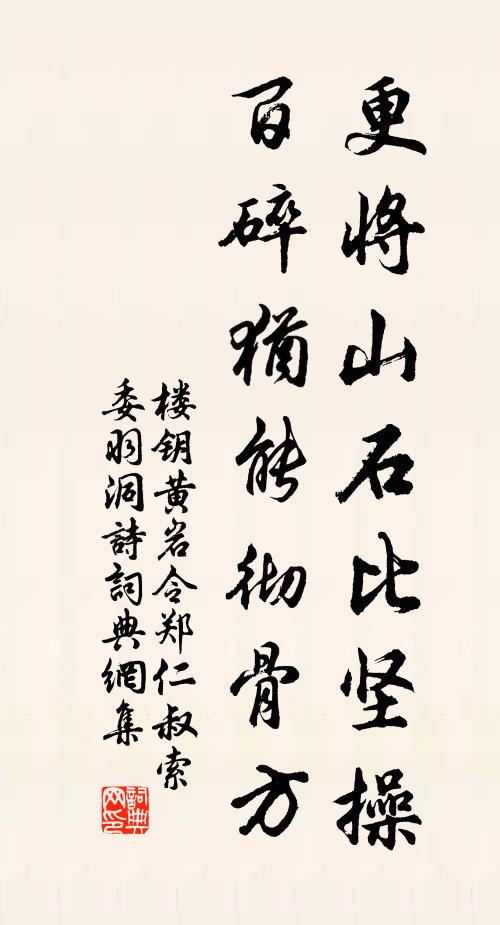 更將山石比坚操
百碎猶能彻骨方
楼钥黄岩令郑仁叔索
委羽洞詩詞典網集
詞典
网印